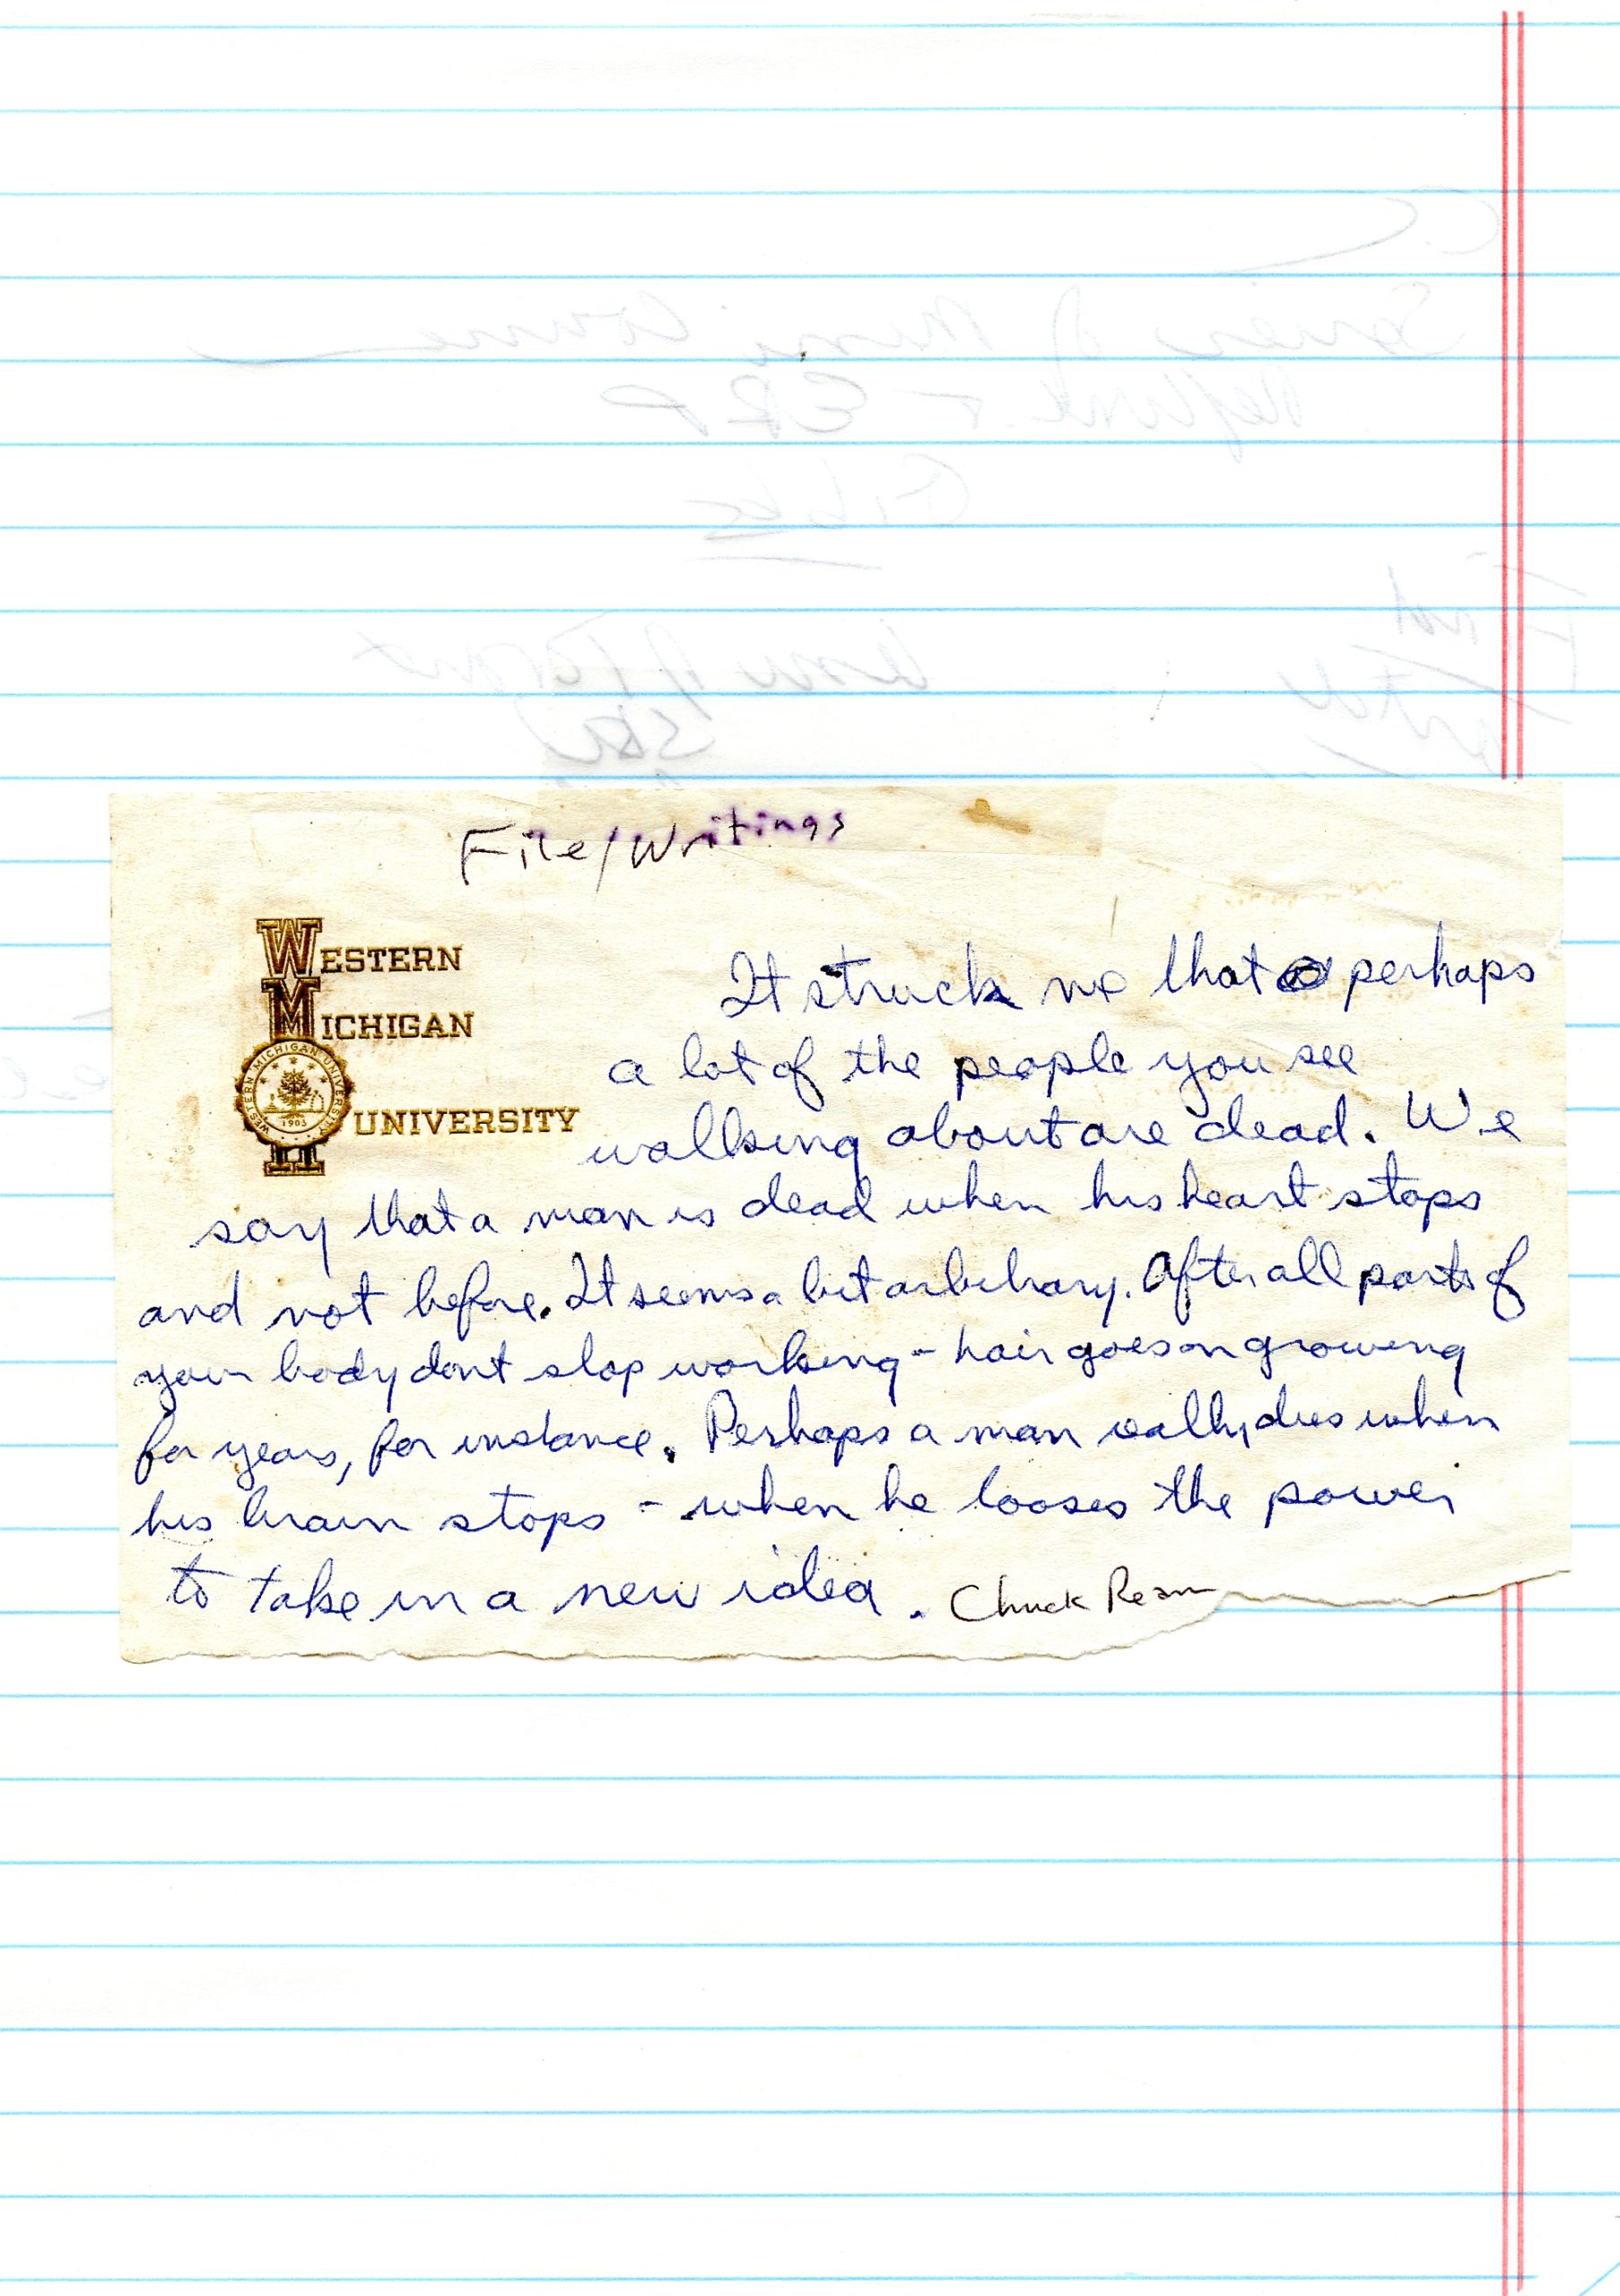 File/Writings
WESTERN
MICHIGAN
UNIVERSITY
WESTERN MICHIGAN UNIVERSITY
1903
It struck me that perhaps
a lot of the people you see
walking about are dead. We
say that a man is dead when his heart stops
and not before. It seems a bit arbitrary. After all parts of
your body dont stop working - hair goes on growing
for years, for instance. Perhaps a man really dies when
his brain stops - when he looses the power
to take in a new idea. Chuck Ream